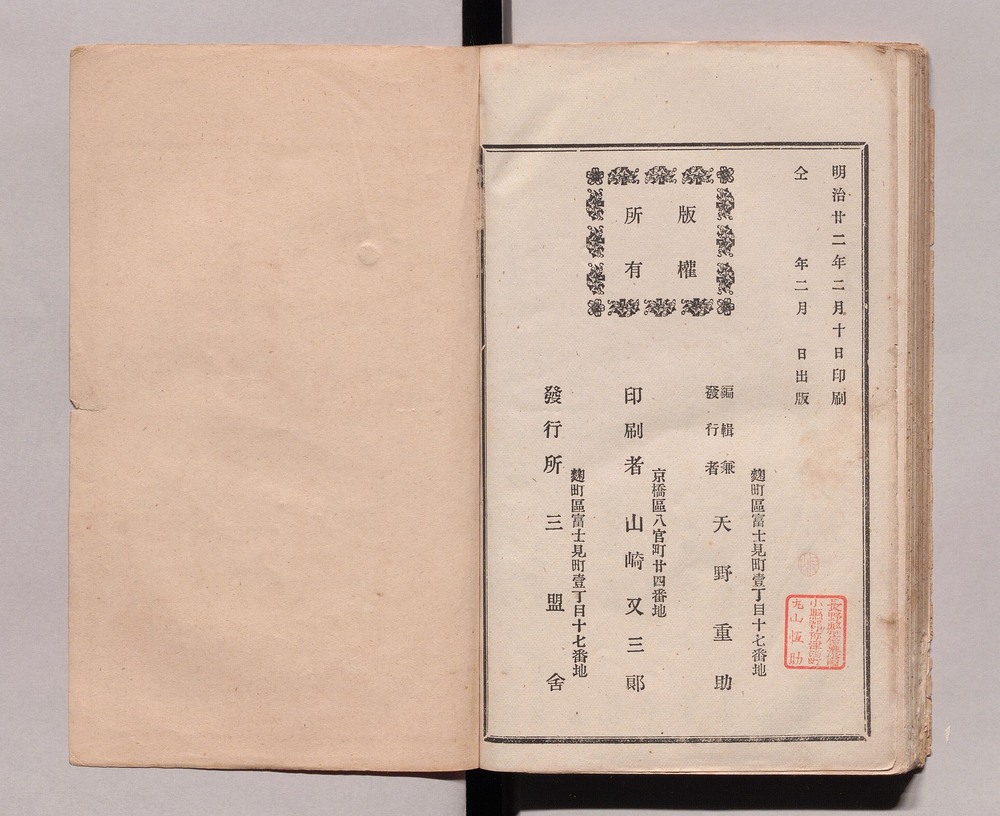 明治廿二年二月十日印刷
仝　　年二月　日出版
版權
所有
麹町區富士見町壹丁目十七番地
編輯兼
發行者
天野重助
京橋區八官町廿四番地
印刷者　山崎又三郎
麹町區富士見町壹丁目十七番地
發行所　三盟舍
丸山恆助